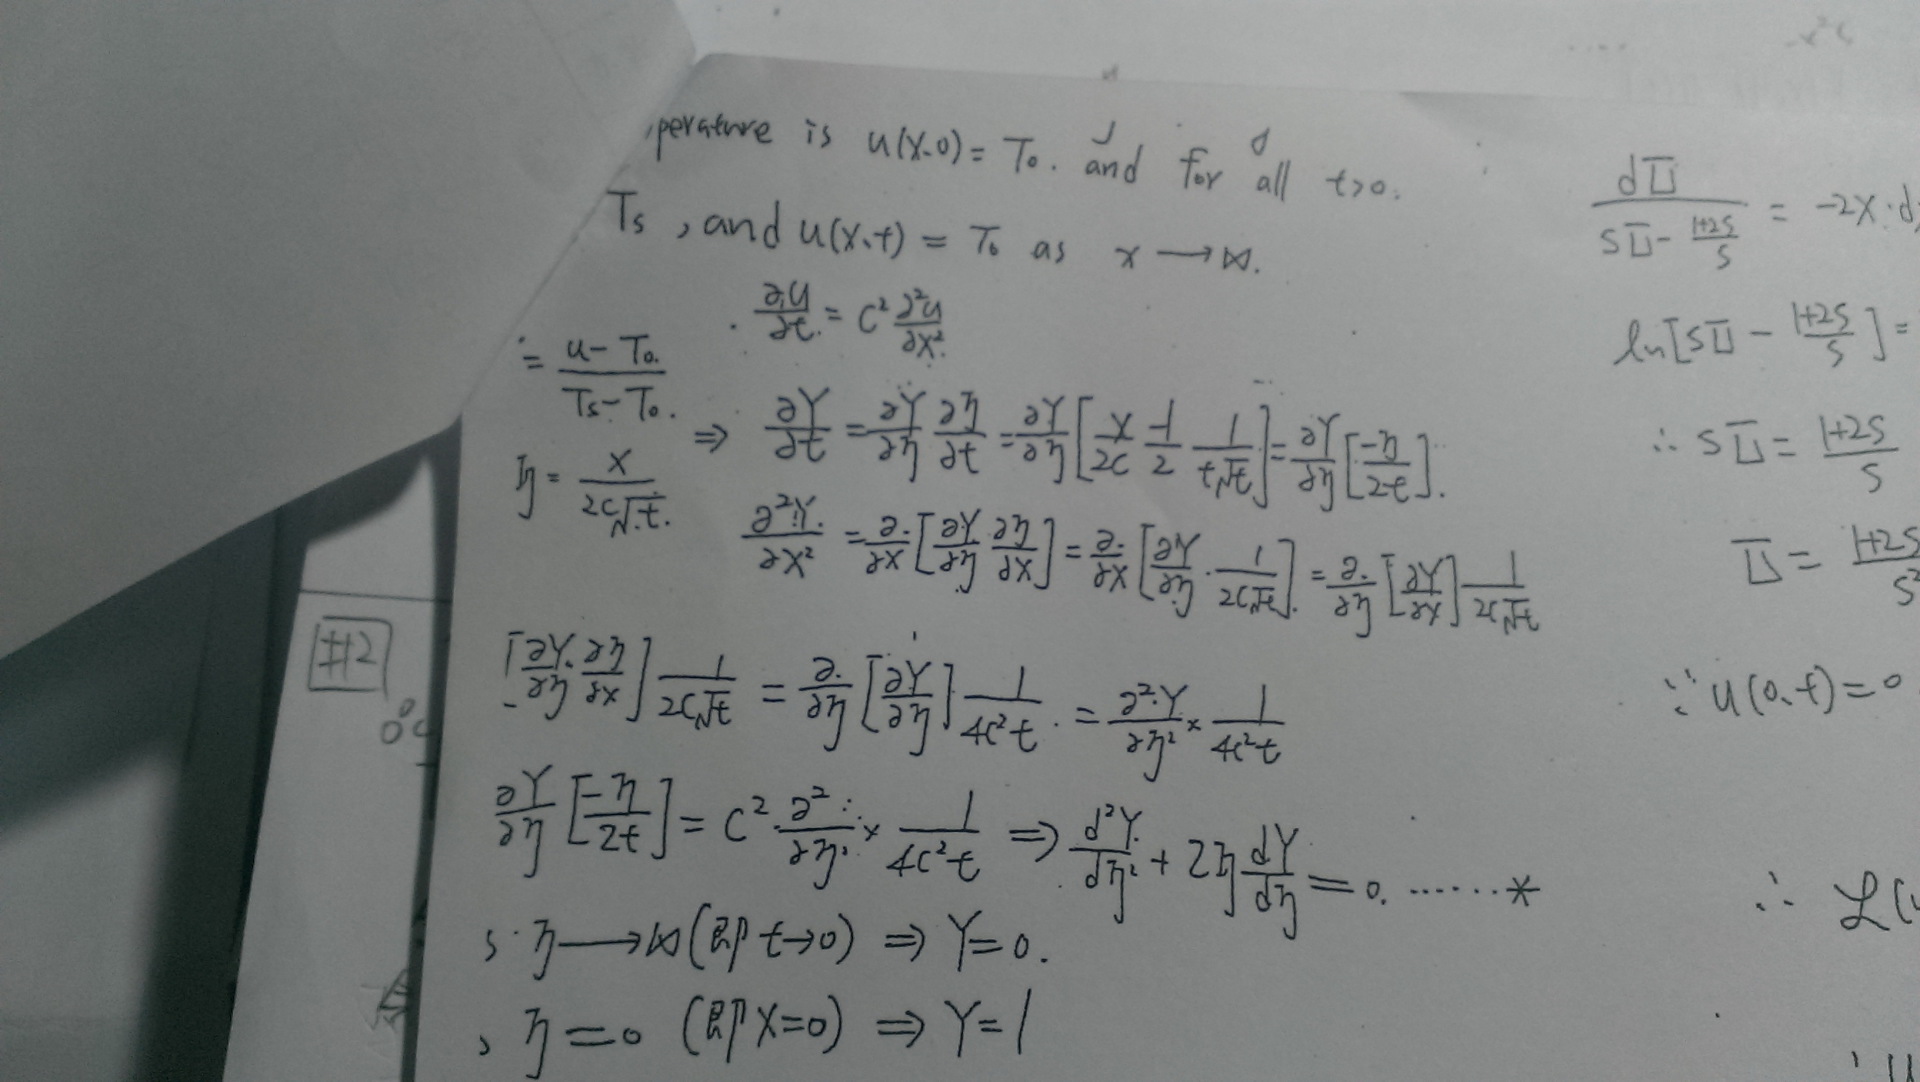 perature is u(x.0) = T₀. and for all t>0.
Ts, and u(x.t) = T₀ as x → ∞.
∂u/∂t = c² ∂²u/∂x²
= (u - T₀)/(Ts - T₀).
η = x/(2c√t).
⇒ ∂Y/∂t = ∂Y/∂η ∂η/∂t = ∂Y/∂η [x/2c -1/2 1/(t√t)] = ∂Y/∂η [-η/2t].
∂²Y/∂x² = ∂/∂x [∂Y/∂η ∂η/∂x] = ∂/∂x [∂Y/∂η · 1/(2c√t)] = ∂/∂η [∂Y/∂x] 1/(2c√t)
[∂Y/∂η ∂η/∂x] 1/(2c√t) = ∂/∂η [∂Y/∂η] 1/(4c²t) = ∂²Y/∂η² × 1/(4c²t)
∂Y/∂η [-η/2t] = c² ∂²/∂η² × 1/(4c²t) ⇒ d²Y/dη² + 2η dY/dη = 0. ······*
η → ∞ (即 t→0) ⇒ Y=0.
η = 0 (即 x=0) ⇒ Y=1
#2
0°C
dU/(sU - (1+2s)/s) = -2x·d
ln[sU - (1+2s)/s] =
∴ sU = (1+2s)/s
U = (1+2s)/s²
∵ u(0.t) = 0
∴ ℒ(